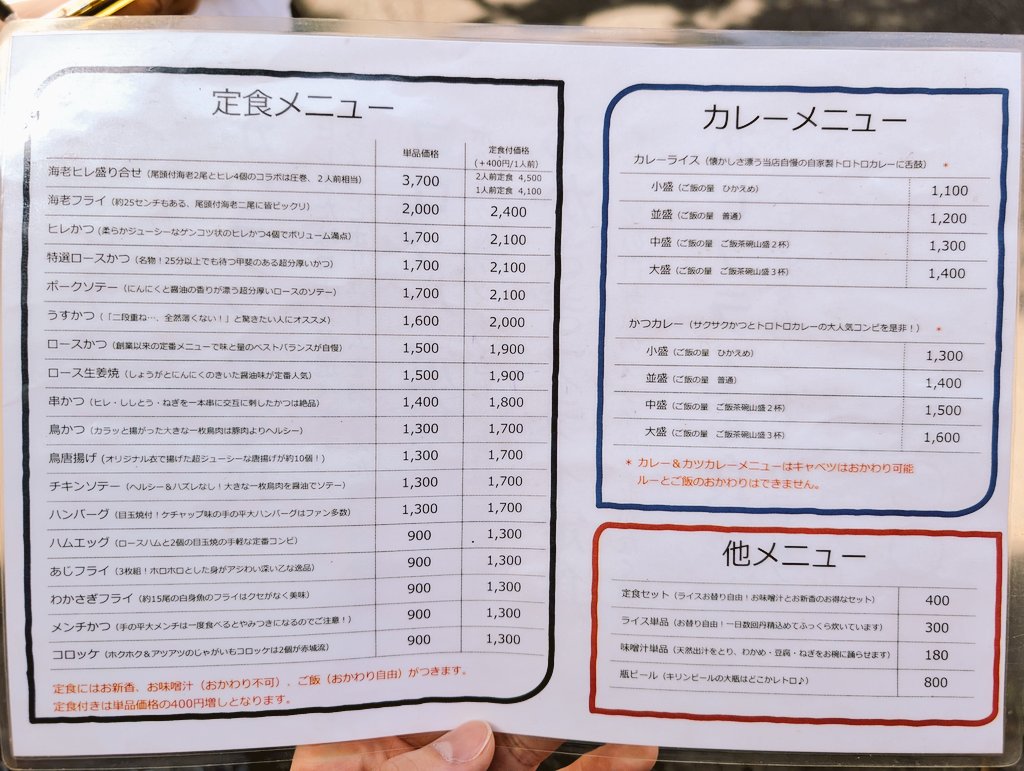 定食メニュー
単品価格 定食付価格
(+400円/1人前)
海老ヒレ盛り合せ（尾頭付海老2尾とヒレ4個のコラボは圧巻、２人前相当） 3,700 2人前定食 4,500
1人前定食 4,100
海老フライ（約25センチもある、尾頭付海老二尾に皆ビックリ） 2,000 2,400
ヒレかつ（柔らかジューシーなゲンコツ状のヒレかつ4個でボリューム満点） 1,700 2,100
特選ロースかつ（名物！25分以上でも待つ甲斐のある超分厚いかつ） 1,700 2,100
ポークソテー（にんにくと醤油の香りが漂う超分厚いロースのソテー） 1,700 2,100
うすかつ（「二段重ね…、全然薄くない！」と驚きたい人にオススメ） 1,600 2,000
ロースかつ（創業以来の定番メニューで味と量のベストバランスが自慢） 1,500 1,900
ロース生姜焼（しょうがとにんにくのきいた醤油味が定番人気） 1,500 1,900
串かつ（ヒレ・ししとう・ねぎを一本串に交互に刺したかつは絶品） 1,400 1,800
鳥かつ（カラッと揚がった大きな一枚鳥肉は豚肉よりヘルシー） 1,300 1,700
鳥唐揚げ（オリジナル衣で揚げた超ジューシーな唐揚げが約10個！） 1,300 1,700
チキンソテー（ヘルシー＆ハズレなし！大きな一枚鳥肉を醤油でソテー） 1,300 1,700
ハンバーグ（目玉焼付！ケチャップ味の手の平大ハンバーグはファン多数） 1,300 1,700
ハムエッグ（ロースハムと2個の目玉焼の手軽な定番コンビ） 900 1,300
あじフライ（3枚組！ホロホロとした身がアジわい深い乙な逸品） 900 1,300
わかさぎフライ（約15尾の白身魚のフライはクセがなく美味） 900 1,300
メンチかつ（手の平大メンチは一度食べるとやみつきになるのでご注意！） 900 1,300
コロッケ（ホクホク＆アツアツのじゃがいもコロッケは2個が赤城流） 900 1,300
定食にはお新香、お味噌汁（おかわり不可）、ご飯（おかわり自由）がつきます。
定食付きは単品価格の400円増しとなります。
カレーメニュー
カレーライス（懐かしさ漂う当店自慢の自家製トロトロカレーに舌鼓） *
小盛（ご飯の量 ひかえめ） 1,100
並盛（ご飯の量 普通） 1,200
中盛（ご飯の量 ご飯茶碗山盛２杯） 1,300
大盛（ご飯の量 ご飯茶碗山盛３杯） 1,400
かつカレー（サクサクかつとトロトロカレーの大人気コンビを是非！） *
小盛（ご飯の量 ひかえめ） 1,300
並盛（ご飯の量 普通） 1,400
中盛（ご飯の量 ご飯茶碗山盛２杯） 1,500
大盛（ご飯の量 ご飯茶碗山盛３杯） 1,600
* カレー＆カツカレーメニューはキャベツはおかわり可能
ルーとご飯のおかわりはできません。
他メニュー
定食セット（ライスお替り自由！お味噌汁とお新香のお得なセット） 400
ライス単品（お替り自由！一日数回丹精込めてふっくら炊いています） 300
味噌汁単品（天然出汁をとり、わかめ・豆腐・ねぎをお碗に踊らせます） 180
瓶ビール（キリンビールの大瓶はどこかレトロ♪） 800